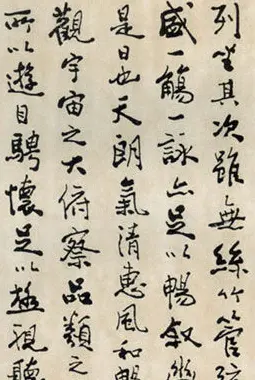 列坐其次雖無絲竹管弦
盛一觴一詠亦足以暢敘幽
是日也天朗氣清惠風和暢
觀宇宙之大俯察品類之
所以遊目騁懷足以極視聽